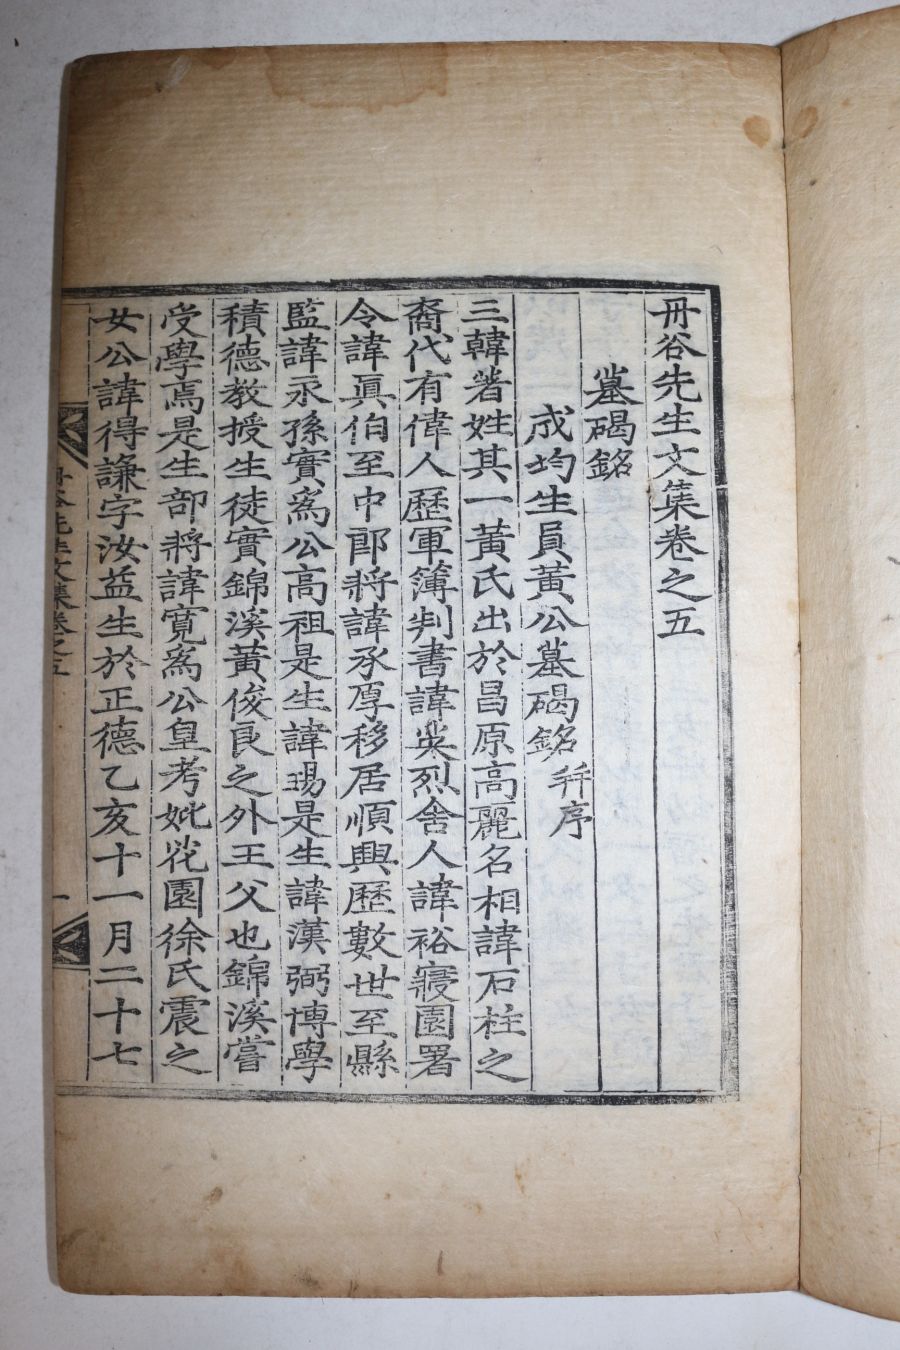 丹谷先生文集卷之五
墓碣銘
成均生員黃公墓碣銘 幷序
三韓著姓其一黃氏出於昌原高麗名相諱石柱之
裔代有偉人歷軍簿判書諱英烈舍人諱裕寢園署
令諱眞伯至中郞將諱承厚移居順興歷數世至縣
監諱永孫實爲公高祖是生諱瑒是生諱漢弼博學
積德敎授生徒實錦溪黃俊良之外王父也錦溪嘗
受學焉是生部將諱寬爲公皇考妣花園徐氏震之
女公諱得謙字汝益生於正德乙亥十一月二十七
丹谷先生文集卷之五
一